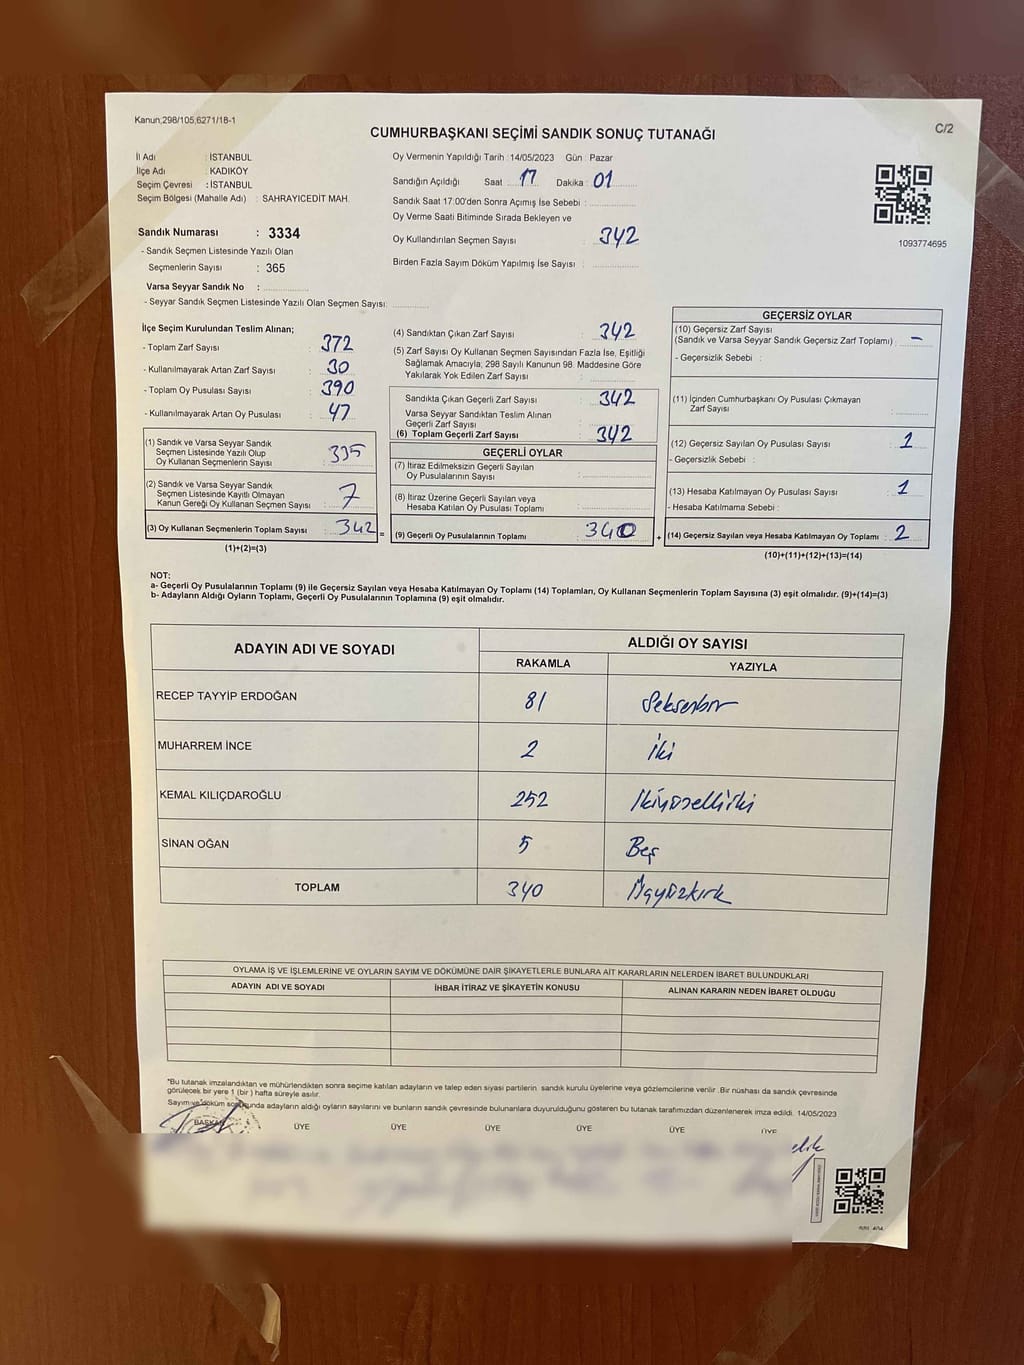 Kanun,298/105,6271/18-1
C/2
CUMHURBAŞKANI SEÇİMİ SANDIK SONUÇ TUTANAĞI
İl Adı : İSTANBUL
İlçe Adı : KADIKÖY
Seçim Çevresi : İSTANBUL
Seçim Bölgesi (Mahalle Adı) : SAHRAYICEDİT MAH.
Oy Vermenin Yapıldığı Tarih : 14/05/2023 Gün : Pazar
Sandığın Açıldığı Saat : 17 Dakika : 01
Sandık Saat 17:00'den Sonra Açımış İse Sebebi :
Oy Verme Saati Bitiminde Sırada Bekleyen ve
Oy Kullandırılan Seçmen Sayısı : 342
Birden Fazla Sayım Döküm Yapılmış İse Sayısı :
1093774695
Sandık Numarası : 3334
- Sandık Seçmen Listesinde Yazılı Olan
Seçmenlerin Sayısı : 365
Varsa Seyyar Sandık No :
- Seyyar Sandık Seçmen Listesinde Yazılı Olan Seçmen Sayısı:
İlçe Seçim Kurulundan Teslim Alınan;
- Toplam Zarf Sayısı : 372
- Kullanılmayarak Artan Zarf Sayısı : 30
- Toplam Oy Pusulası Sayısı : 390
- Kullanılmayarak Artan Oy Pusulası : 47
(1) Sandık ve Varsa Seyyar Sandık
Seçmen Listesinde Yazılı Olup
Oy Kullanan Seçmenlerin Sayısı : 335
(2) Sandık ve Varsa Seyyar Sandık
Seçmen Listesinde Kayıtlı Olmayan
Kanun Gereği Oy Kullanan Seçmen Sayısı : 7
(3) Oy Kullanan Seçmenlerin Toplam Sayısı : 342 =
(1)+(2)=(3)
(4) Sandıktan Çıkan Zarf Sayısı : 342
(5) Zarf Sayısı Oy Kullanan Seçmen Sayısından Fazla İse, Eşitliği
Sağlamak Amacıyla, 298 Sayılı Kanunun 98. Maddesine Göre
Yakılarak Yok Edilen Zarf Sayısı :
Sandıkta Çıkan Geçerli Zarf Sayısı : 342
Varsa Seyyar Sandıktan Teslim Alınan
Geçerli Zarf Sayısı
(6) Toplam Geçerli Zarf Sayısı : 342
GEÇERLİ OYLAR
(7) İtiraz Edilmeksizin Geçerli Sayılan
Oy Pusulalarının Sayısı :
(8) İtiraz Üzerine Geçerli Sayılan veya
Hesaba Katılan Oy Pusulası Toplamı :
(9) Geçerli Oy Pusulalarının Toplamı : 340 +
GEÇERSİZ OYLAR
(10) Geçersiz Zarf Sayısı
(Sandık ve Varsa Seyyar Sandık Geçersiz Zarf Toplamı) : –
- Geçersizlik Sebebi :
(11) İçinden Cumhurbaşkanı Oy Pusulası Çıkmayan
Zarf Sayısı :
(12) Geçersiz Sayılan Oy Pusulası Sayısı : 1
- Geçersizlik Sebebi :
(13) Hesaba Katılmayan Oy Pusulası Sayısı : 1
- Hesaba Katılmama Sebebi :
(14) Geçersiz Sayılan veya Hesaba Katılmayan Oy Toplamı : 2
(10)+(11)+(12)+(13)=(14)
NOT:
a- Geçerli Oy Pusulalarının Toplamı (9) ile Geçersiz Sayılan veya Hesaba Katılmayan Oy Toplamı (14) Toplamları, Oy Kullanan Seçmenlerin Toplam Sayısına (3) eşit olmalıdır. (9)+(14)=(3)
b- Adayların Aldığı Oyların Toplamı, Geçerli Oy Pusulalarının Toplamına (9) eşit olmalıdır.
ADAYIN ADI VE SOYADI
ALDIĞI OY SAYISI
RAKAMLA YAZIYLA
RECEP TAYYİP ERDOĞAN 81 Seksenbir
MUHARREM İNCE 2 İki
KEMAL KILIÇDAROĞLU 252 İkiyüzelliiki
SİNAN OĞAN 5 Beş
TOPLAM 340 Üçyüzkırk
OYLAMA İŞ VE İŞLEMLERİNE VE OYLARIN SAYIM VE DÖKÜMÜNE DAİR ŞİKAYETLERLE BUNLARA AİT KARARLARIN NELERDEN İBARET BULUNDUKLARI
ADAYIN ADI VE SOYADI İHBAR İTİRAZ VE ŞİKAYETİN KONUSU ALINAN KARARIN NEDEN İBARET OLDUĞU
*Bu tutanak imzalandıktan ve mühürlendikten sonra seçime katılan adayların ve talep eden siyasi partilerin, sandık kurulu üyelerine veya gözlemcilerine verilir .Bir nüshası da sandık çevresinde
görülecek bir yere 1 (bir ) hafta süreyle asılır.
Sayım ve döküm sonucunda adayların aldığı oyların sayılarını ve bunların sandık çevresinde bulunanlara duyurulduğunu gösteren bu tutanak tarafımızdan düzenlenerek imza edildi. 14/05/2023
BAŞKAN ÜYE ÜYE ÜYE ÜYE ÜYE ÜYE